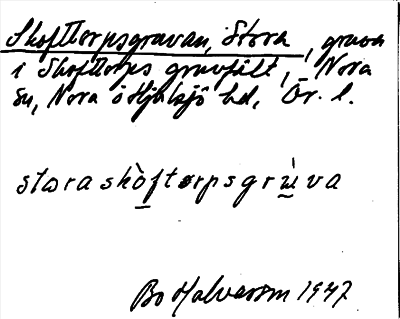 Skofttorpsgruvan, Stora, gruva
i Skofttorps gruvfält, Nora
sn, Nora o Hjulsjö hd, Ör. l.
stora skò̲ftorpsgrù̲va
Bo Halvarson 1947